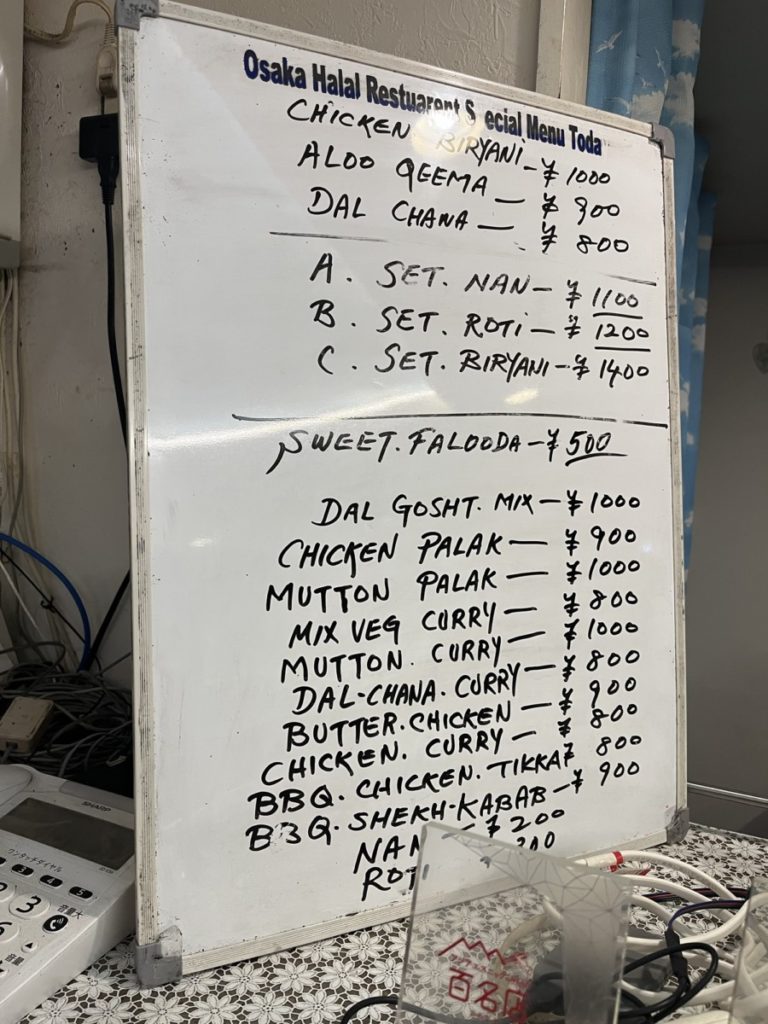 Osaka Halal Restuarent S ecial Menu Toda
CHICKEN BIRYANI - ¥ 1000
ALOO QEEMA - ¥ 900
DAL CHANA - ¥ 800
A. SET. NAN - ¥ 1100
B. SET. ROTI - ¥ 1200
C. SET. BIRYANI - ¥ 1400
SWEET. FALOODA - ¥ 500
DAL GOSHT. MIX - ¥ 1000
CHICKEN PALAK - ¥ 900
MUTTON PALAK - ¥ 1000
MIX VEG CURRY - ¥ 800
MUTTON. CURRY - ¥ 1000
DAL-CHANA. CURRY - ¥ 800
BUTTER. CHICKEN - ¥ 900
CHICKEN. CURRY - ¥ 800
BBQ. CHICKEN. TIKKA ¥ 800
BBQ. SHEKH-KABAB - ¥ 900
NAN - ¥ 200
ROTI
SHARP
ワンタッチダイヤル
音量大
音量
百名店